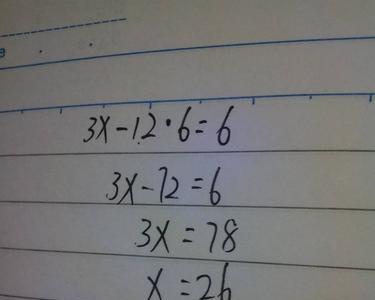 3x-12·6=6
3x-72=6
3x=78
x=26